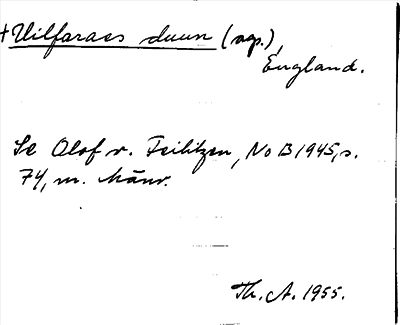 +Uilfaraes duun (ags.),
England.
Se Olof v. Feilitzen, NoB 1945, s.
74, m. hänv.
Th. A. 1955.